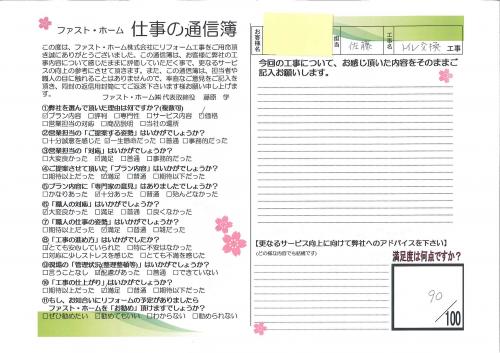 ファスト・ホーム 仕事の通信簿
この度は、ファスト・ホーム株式会社にリフォーム工事をご用命頂き
誠にありがとうございました。このお客様アンケートは、お客様に弊社の工
事内容について感じたままに評価していただく事で、更なるサービ
スの向上の参考にさせて頂きます。また、この通信簿は、担当者や
職人の目に触れることはありませんので、率直なご意見をご記入を
頂き、同封の返信用封筒にてご返送下さいます様お願い申し上げま
す。
ファスト・ホーム㈱代表取締役 藤原 学
①弊社を選んで頂いた理由は何ですか?(複数可)
☑プラン内容 □評判 □専門性 □サービス内容 □価格
□営業担当の対応 □商品説明 □当社の場所
②営業担当の「ご提案する姿勢」はいかがでしょうか?
□十分誠意を感じた ☑一生懸命だった □普通 □事務的だった
③営業担当の「対応」はいかがでしょうか?
□大変良かった ☑満足 □普通 □事務的だった
④ご提案させて頂いた「プラン内容」はいかがでしょうか?
□期待以上だった ☑満足 □普通 □期待以下だった
⑤プラン内容に「専門家の意見」はありましたでしょうか?
□かなりあった ☑十分あった □普通 □殆んどなかった
⑥「職人の対応」はいかがでしょうか?
☑大変良かった □満足 □普通 □良くなかった
⑦「職人の仕事の姿勢」はいかがでしょうか?
□期待以上だった ☑満足 □普通 □雑だった
⑧「工事の進め方」はいかがでしたか?
☑とても安心していられた □特に不安はなかった
□対応に少しストレスを感じた □とても不満を感じた
⑨現場の「管理状況(整理整頓等)」はいかがでしょうか?
□言うことなし ☑配慮があった □普通 □できていない
⑩「工事の仕上がり」はいかがでしょうか?
□期待以上だった ☑満足 □普通 □期待以下だった
⑪もし、お知合いにリフォームの予定がありましたら
ファスト・ホームを「お勧め」頂けますでしょうか?
□ぜひ勧めたい ☑勧めてもいい □わからない □勧められない
お客様名
担当
佐藤
工事名
トイレ交換 工事
今回の工事について、お感じ頂いた内容をそのままご
記入お願いします。
【更なるサービス向上に向けて弊社へのアドバイスを下さい】
(どの様な内容でも結構です)
満足度は何点ですか?
90
/100